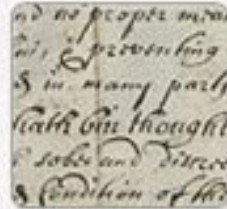 nd no proper mea
his, & preventing
& in many part
hath bin thought
sober and discree
& Condition of the